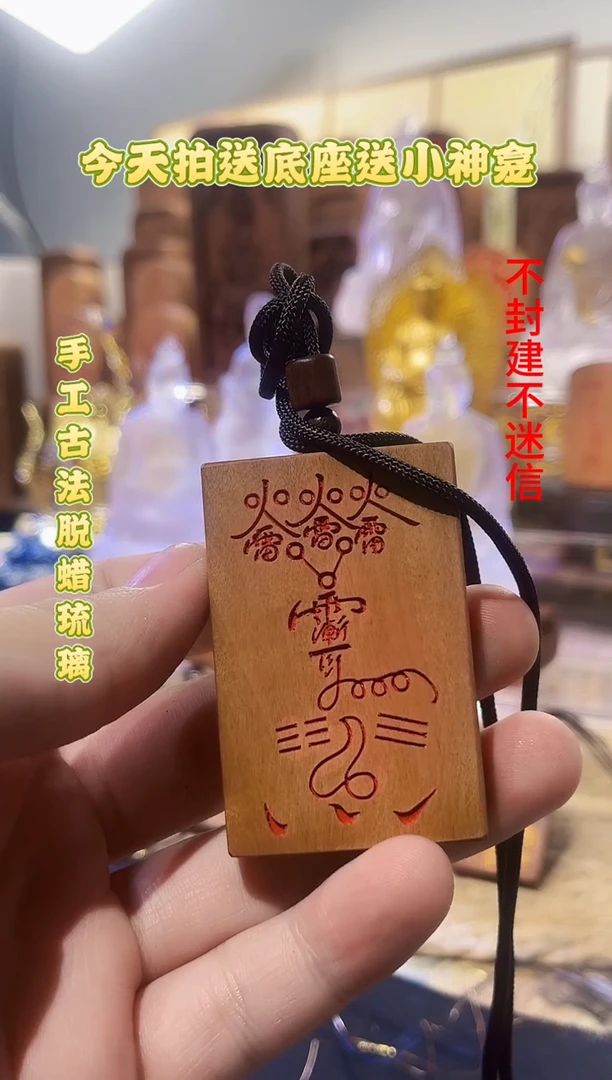 今天拍送底座送小神龛
不封建不迷信
手工古法脱蜡琉璃
火火火
雷雷雷